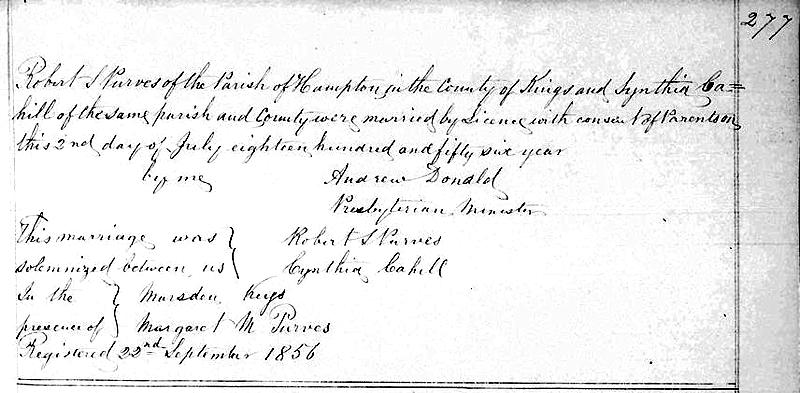 277
Robert S Purves of the Parish of Hampton in the County of Kings and Synthia Ca=
hill of the same parish and County were married by Licence with consent of Parents on
this 2nd day of July eighteen hundred and fifty six year
by me Andrew Donald
Presbyterian Minister
This marriage was } Robert S Purves
solemnized between us { Cynthia Cahill
In the } Marsden Keys
presence of } Margaret M Purves
Registered 22nd September 1856